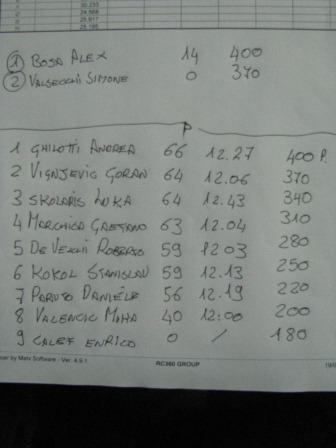 30.233
24.568
25.917
25.185
1 BOSA ALEX 14 400
2 VALSECCHI SIMONE 0 370
P
1 GHILOTTI ANDREA 66 12.27 400 P.
2 VIGNJEVIC GORAN 64 12.06 370
3 SKOLARIS LUKA 64 12.43 340
4 MARCHICA GAETANO 63 12.04 310
5 DE VECCHI ROBERTO 59 12 03 280
6 KOKOL STANISLAV 59 12.13 250
7 PARUTO DANIELE 56 12.19 220
8 VALENCIC MIHA 40 12:00 200
9 CALEF ENRICO 0 / 180
by Matv Software - Ver. 4.9.1 RC360 GROUP 19/0